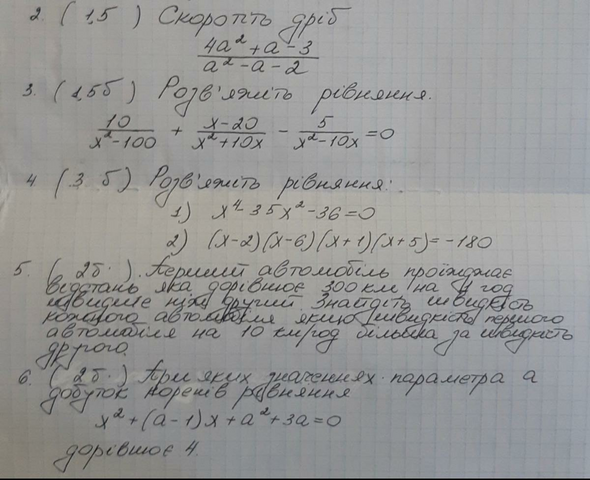 2. (1,5 ) Скоротіть дріб
4a² + a - 3
a² - a - 2
3. (1,5б) Розв'яжіть рівняння.
10 / x² - 100 + x - 20 / x² + 10x - 5 / x² - 10x = 0
4 (3 б) Розв'яжіть рівняння:
1) x⁴ - 35x² - 36 = 0
2) (x-2)(x-6)(x+1)(x+5) = -180
5. (2б.) Перший автомобіль проїжджає
відстань яка дорівнює 300 км на 1 год
швидше ніж другий. Знайдіть швидкість
кожного автомобіля якщо швидкість першого
автомобіля на 10 км/год більша за швидкість
другого.
6. (2б.) При яких значеннях параметра a
добуток коренів рівняння
x² + (a-1)x + a² + 3a = 0
дорівнює 4.